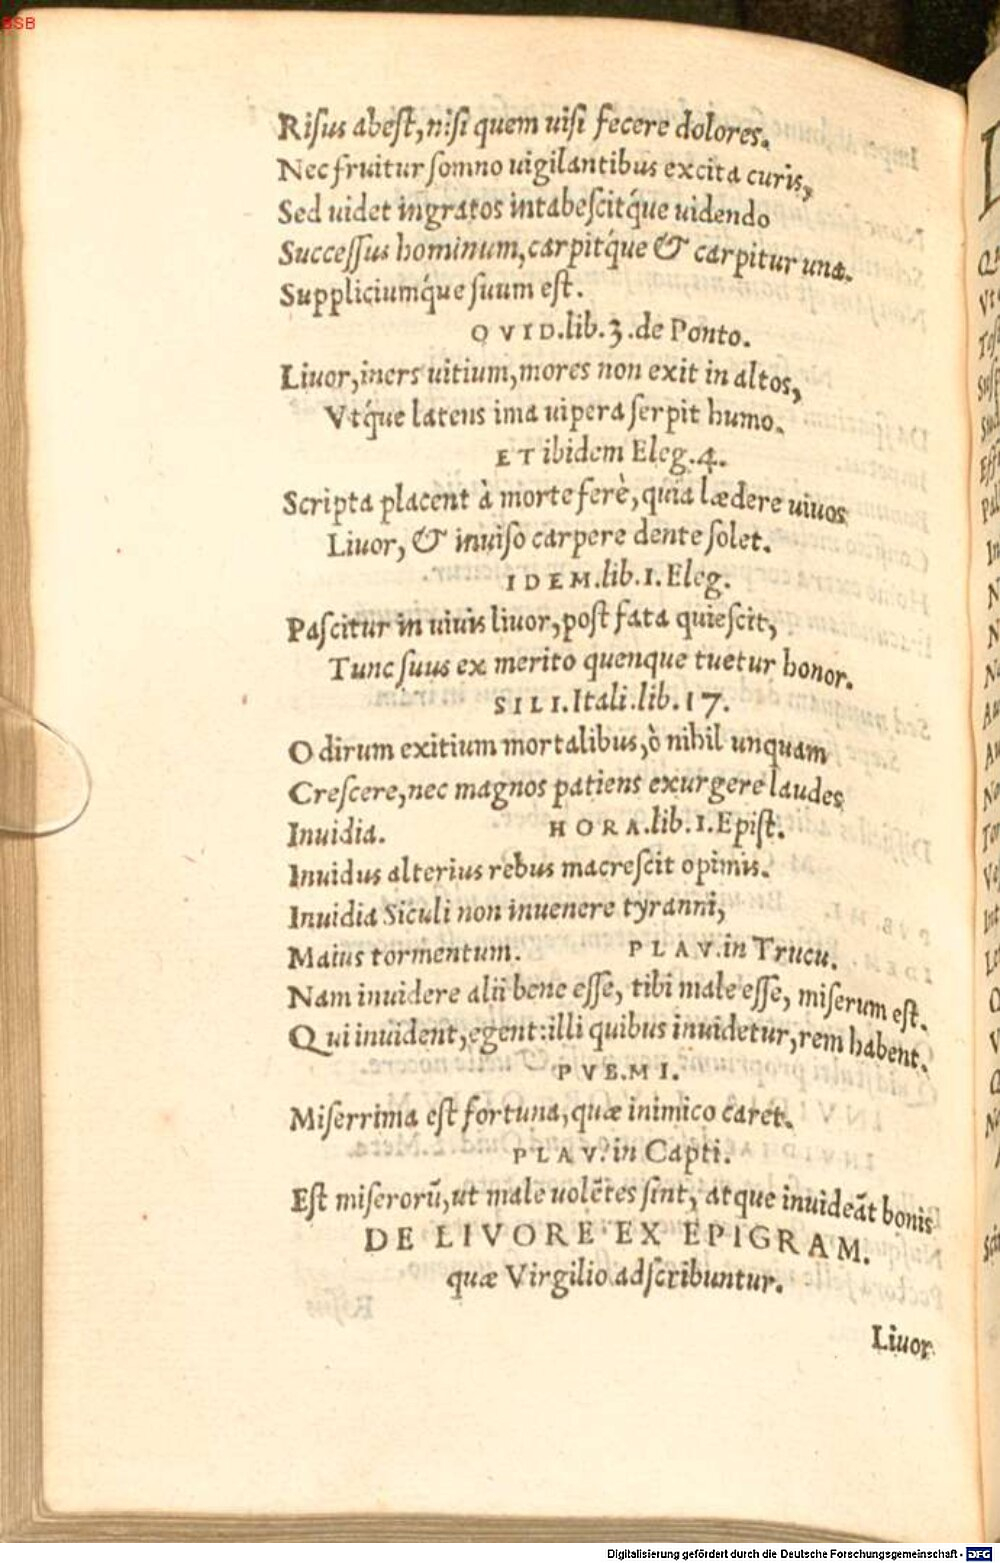 BSB
Risus abest, nisi quem uisi fecere dolores.
Nec fruitur somno uigilantibus excita curis,
Sed uidet ingratos intabescitq́ue uidendo
Successus hominum, carpitq́ue & carpitur una.
Suppliciumq́ue suum est.
OVID.lib.3.de Ponto.
Liuor, iners uitium, mores non exit in altos,
Vtq́ue latens ima uipera serpit humo.
ET ibidem Eleg.4.
Scripta placent à morte ferè, quia lædere uiuos
Liuor, & inuiso carpere dente solet.
IDEM.lib.1.Eleg.
Pascitur in uiuis liuor, post fata quiescit,
Tunc suus ex merito quenque tuetur honor.
SILI.Itali.lib.17.
O dirum exitium mortalibus, ò nihil unquam
Crescere, nec magnos patiens exurgere laudes
Inuidia. HORA.lib.1.Epist.
Inuidus alterius rebus macrescit opimis.
Inuidia Siculi non inuenere tyranni,
Maius tormentum. PLAV.in Trucu.
Nam inuidere alii bene esse, tibi male esse, miserum est.
Qui inuident, egent: illi quibus inuidetur, rem habent.
PVB.MI.
Miserrima est fortuna, quæ inimico caret.
PLAV.in Capti.
Est miserorū, ut male uolētes sint, atque inuideāt bonis
DE LIVORE EX EPIGRAM.
quæ Virgilio adscribuntur.
Liuor
Digitalisierung gefördert durch die Deutsche Forschungsgemeinschaft - DFG